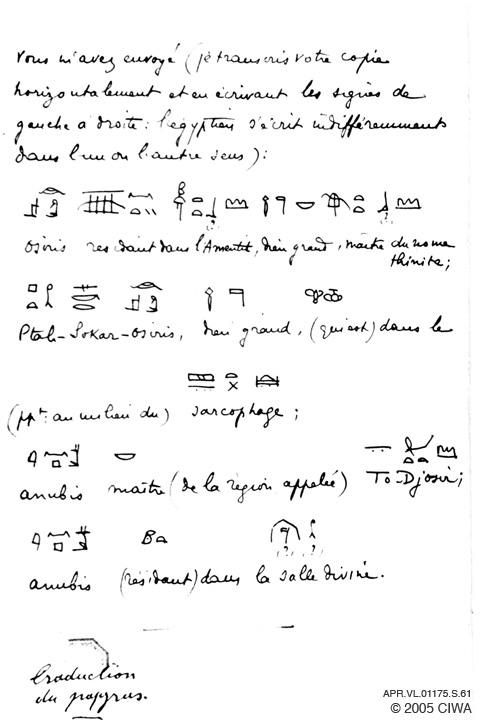 vous m'avez envoyé (je transcris votre copie
horizontalement et en écrivant les signes de
gauche à droite : l'égyptien s'écrit indifféremment
dans l'un ou l'autre sens) :
Osiris résidant dans l'Amentit, dieu grand, maître du nome
thinite ;
Ptah-Sokar-Osiris, dieu grand, (qui est) dans le
(ppt. au milieu du) sarcophage ;
anubis maître (de la région appelée) To-Djosir ;
anubis (résidant) dans la salle divine.
Traduction
du papyrus.
APR.VL.01175.S.61
© 2005 CIWA